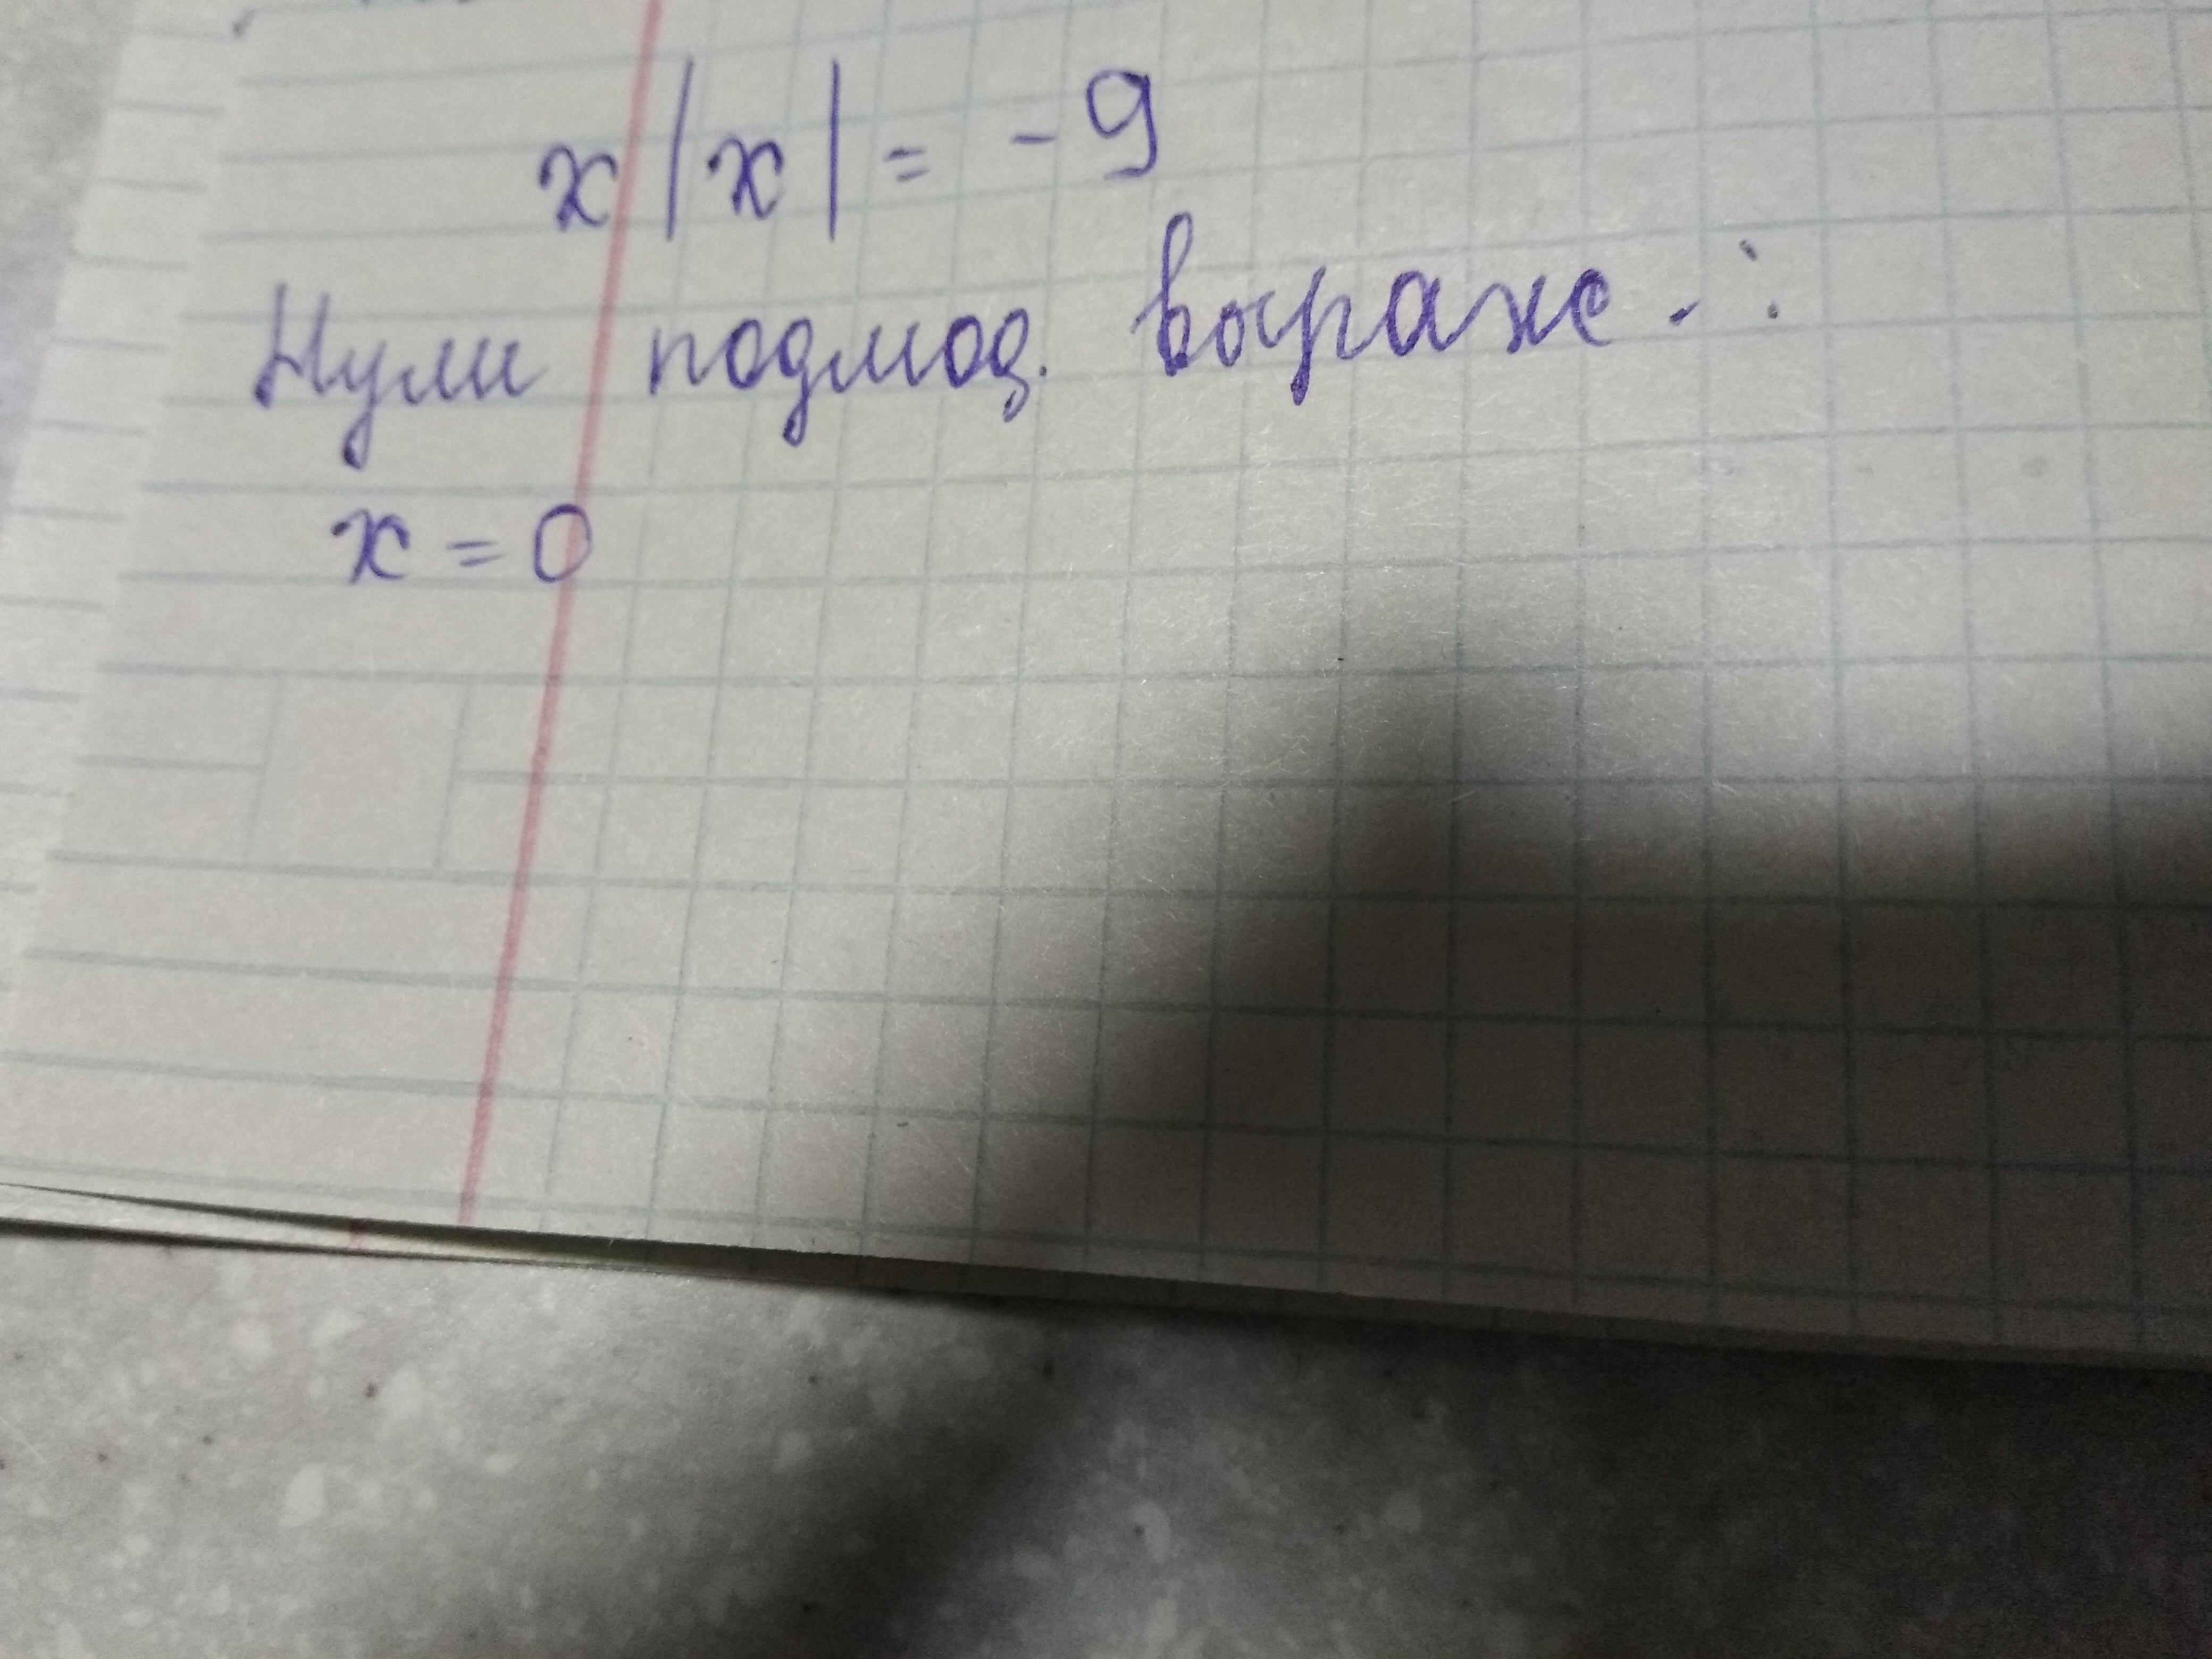 x|x| = -9
Нули подмод. выраж.:
x = 0